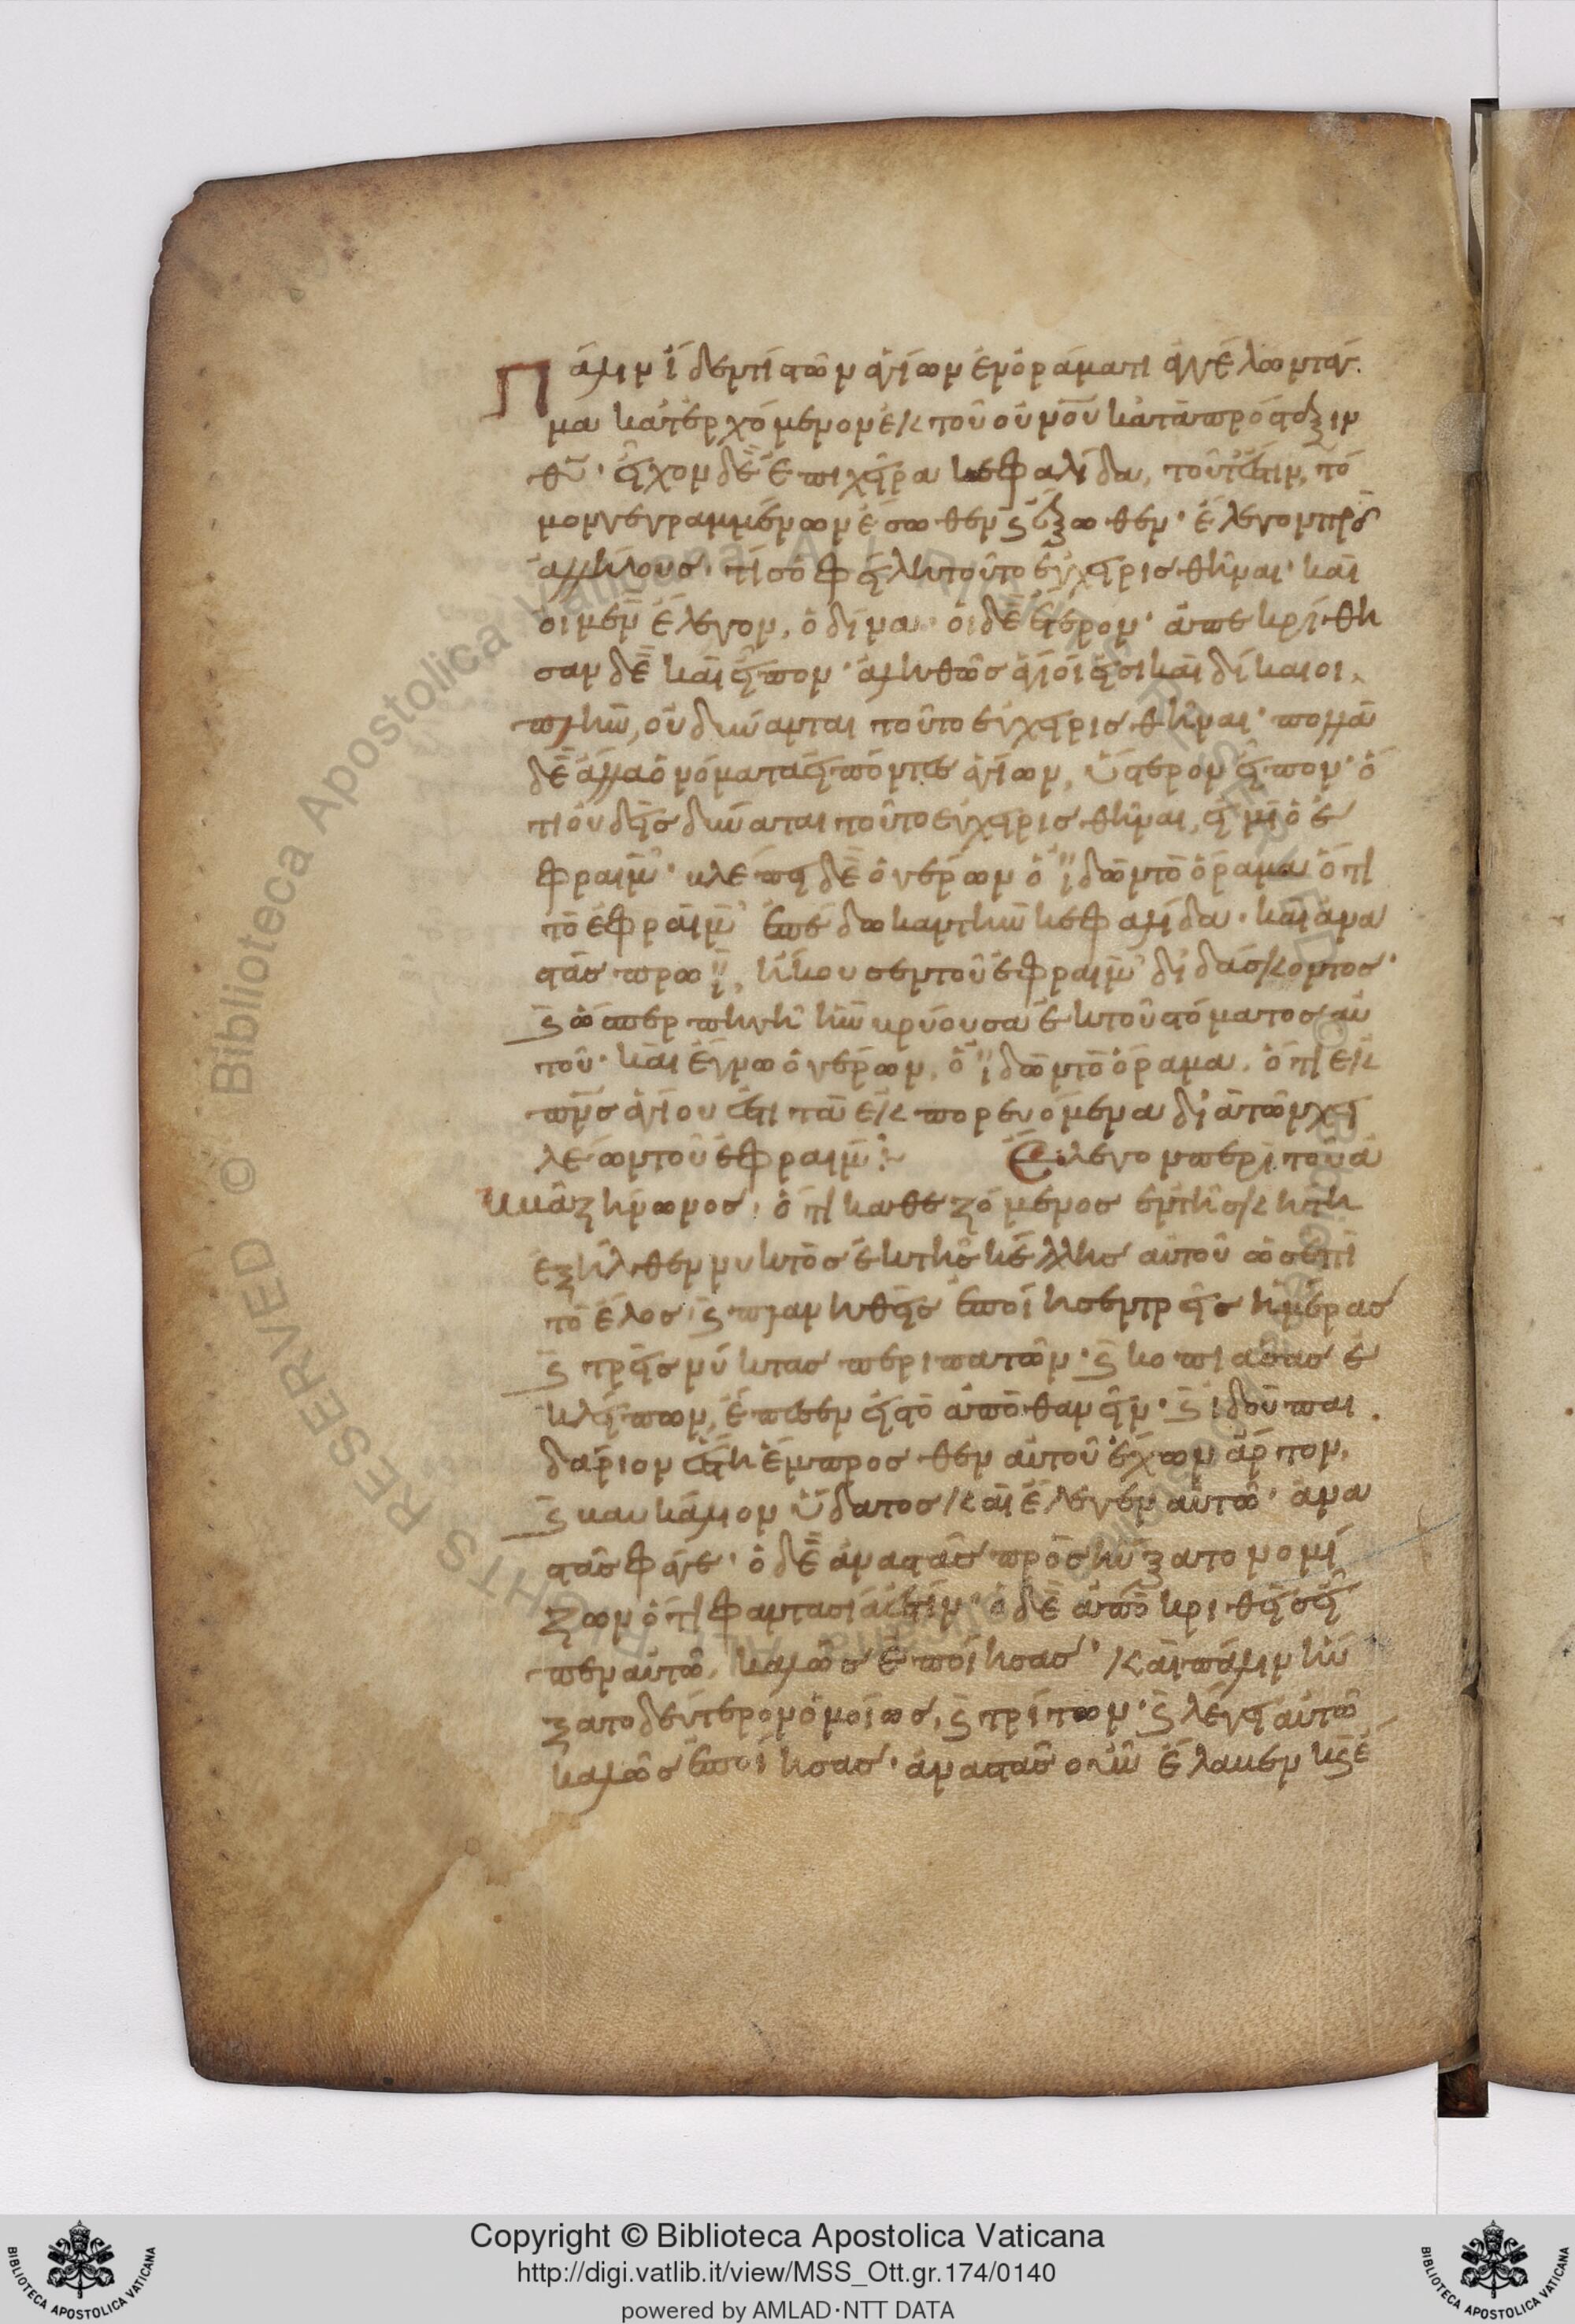 Πάλιν ἴδεν τὶς τῶν ἁγίων ἐν ὁράματι ἀγγέλων τάγ
μα κατερχόμενον ἐκ τοῦ οὐνοῦ κατὰ πρόσταξιν
θῦ· εἶχον δὲ ἐπι χεῖρα κεφαλίδα, τοῦτέστιν, τό
μον γεγραμμένων ἔσωθεν ϛ ἔξωθεν· ἔλεγον πρὸς
ἀλλήλους· τίς ὀφείλη τοῦτο ἐγχειρισθῆναι· καὶ
οἱ μὲν ἔλεγον, ὁ δίνα· οἱ δὲ ἕτερον· ἀπεκρίθη
σαν δὲ καὶ εἶπον· ἀληθῶς ἅγιοι εἰσι καὶ δίκαιοι,
πλὴν, οὐ δύνανται τοῦτο ἐγχειρισθῆναι· πολλὰ
δὲ ἄλλα ὀνόματα εἰπόντες ἁγίων, ὕστερον εἶπον· ὅ
τι οὐδεὶς δύναται τοῦτο ἐγχειρισθῆναι, εἰ μὶ ὁ ἐ
φραιμ· βλέπει δὲ ὁ γέρων ὁ ἰδὼν τὸ ὅραμα ὅτι
τὸ ἐφραὶμ ἐπέδωκαν τὴν κεφαλίδα· καὶ ἀνα
στὰς πρωῒ, ἤκουσεν τοῦ ἐφραὶμ διδάσκοντος·
ϛ ὥσπερ πηγὴ ἦν βρύουσα ἐκ τοῦ στόματος αὐ
τοῦ· καὶ ἔγνω ὁ γέρων, ὁ ἰδὼν τὸ ὅραμα, ὅτι ἐκ
πνς ἁγίου ἐστι τὰ ἐκπορευόμενα διὰ τῶν χει
λέων τοῦ ἐφραιμ:
Ἔλεγον περὶ τοῦ ἀ
ββᾶ ζήνωνος· ὅτι καθεζόμενος ἐν τῆ σκήτη
ἐξῆλθεν νυκτὸς ἐκ τῆς κέλλης αὐτοῦ ὡς ἐπὶ
τὸ ἕλος· ϛ πλανηθεὶς ἐποίησεν τρεῖς ἡμέρας
ϛ τρεῖς νύκτας περιπατῶν· ϛ κοπιάσας ἐ
κλείπων, ἔπεσεν εἰς τὸ ἀποθανεῖν· ϛ ἰδοὺ παι
δάριον ἔστη ἔμπροσθεν αὐτοῦ ἔχων ἄρτον,
ϛ βαυκάλιον ὕδατος καὶ ἔλεγεν αὐτῶ· ἀνα
στὰς φάγε· ὁ δὲ ἀναστὰς πρὸσηύξατο νομί
ζων ὅτι φαντασία ἐστίν· ὁ δὲ ἀποκριθεὶς εἶ
πεν αὐτῶ, καλῶς ἐποίησας· καὶ πάλιν ηὔ
ξατο δεύτερον ὁμοίως, ϛ τρίτων· ϛ λέγει αὐτῶ
καλῶς ἐποίησας· ἀναστὰς οὖν ἔλαβεν κς ἔ
Copyright © Biblioteca Apostolica Vaticana
http://digi.vatlib.it/view/MSS_Ott.gr.174/0140
powered by AMLAD·NTT DATA